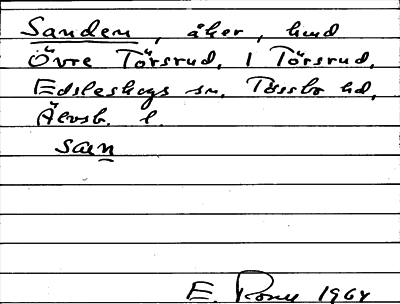 Sanden, åker, hmd
Övre Törsrud, 1 Törsrud,
Edsleskogs sn. Tössbo hd,
Älvsb. l.
san
E. Rosu 1964